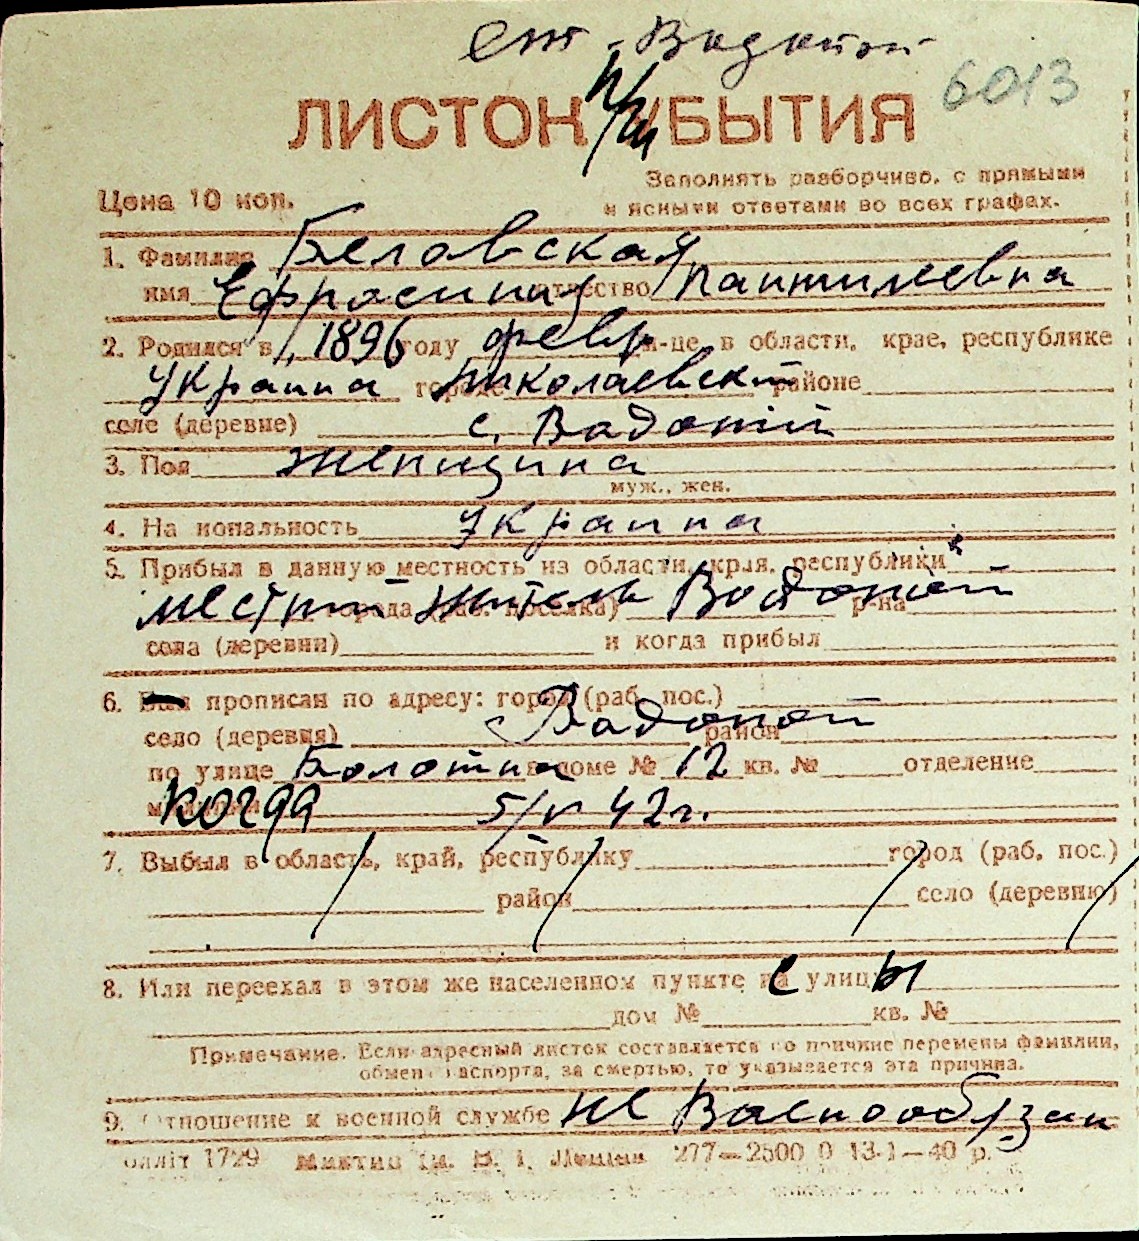 ст. Водопой
6013
ЛИСТОК УБЫТИЯ
Цена 10 коп.
Заполнять разборчиво, с прямыми
и ясными ответами во всех графах.
1. Фамилия Беловская
имя Ефросиния отчество Пантилеевна
2. Родился в 1896 году февр м-це в области, крае, республике
Украина городе Николаевск районе
селе (деревне) с. Вадопой
3. Пол женщина
муж., жен.
4. Национальность Украина
5. Прибыл в данную местность из области, края, республики
местний житель Водопой
города (раб. поселка) р-на
села (деревни) и когда прибыл
6. Был прописан по адресу: город (раб. пос.)
село (деревня) Вадопой район
по улице Болотна в доме № 12 кв. № отделение
милиции когда 5/V 42 г.
7. Выбыл в область, край, республику город (раб. пос.)
район село (деревню)
8. Или переехал в этом же населенном пункте с улицы
дом № кв. №
Примечание. Если адресный листок составляется по причине перемены фамилии,
обмена паспорта, за смертью, то указывается эта причина.
9. Отношение к военной службе не Военообрзан
олліт 1729 277—2500 0 13-1—40 р.